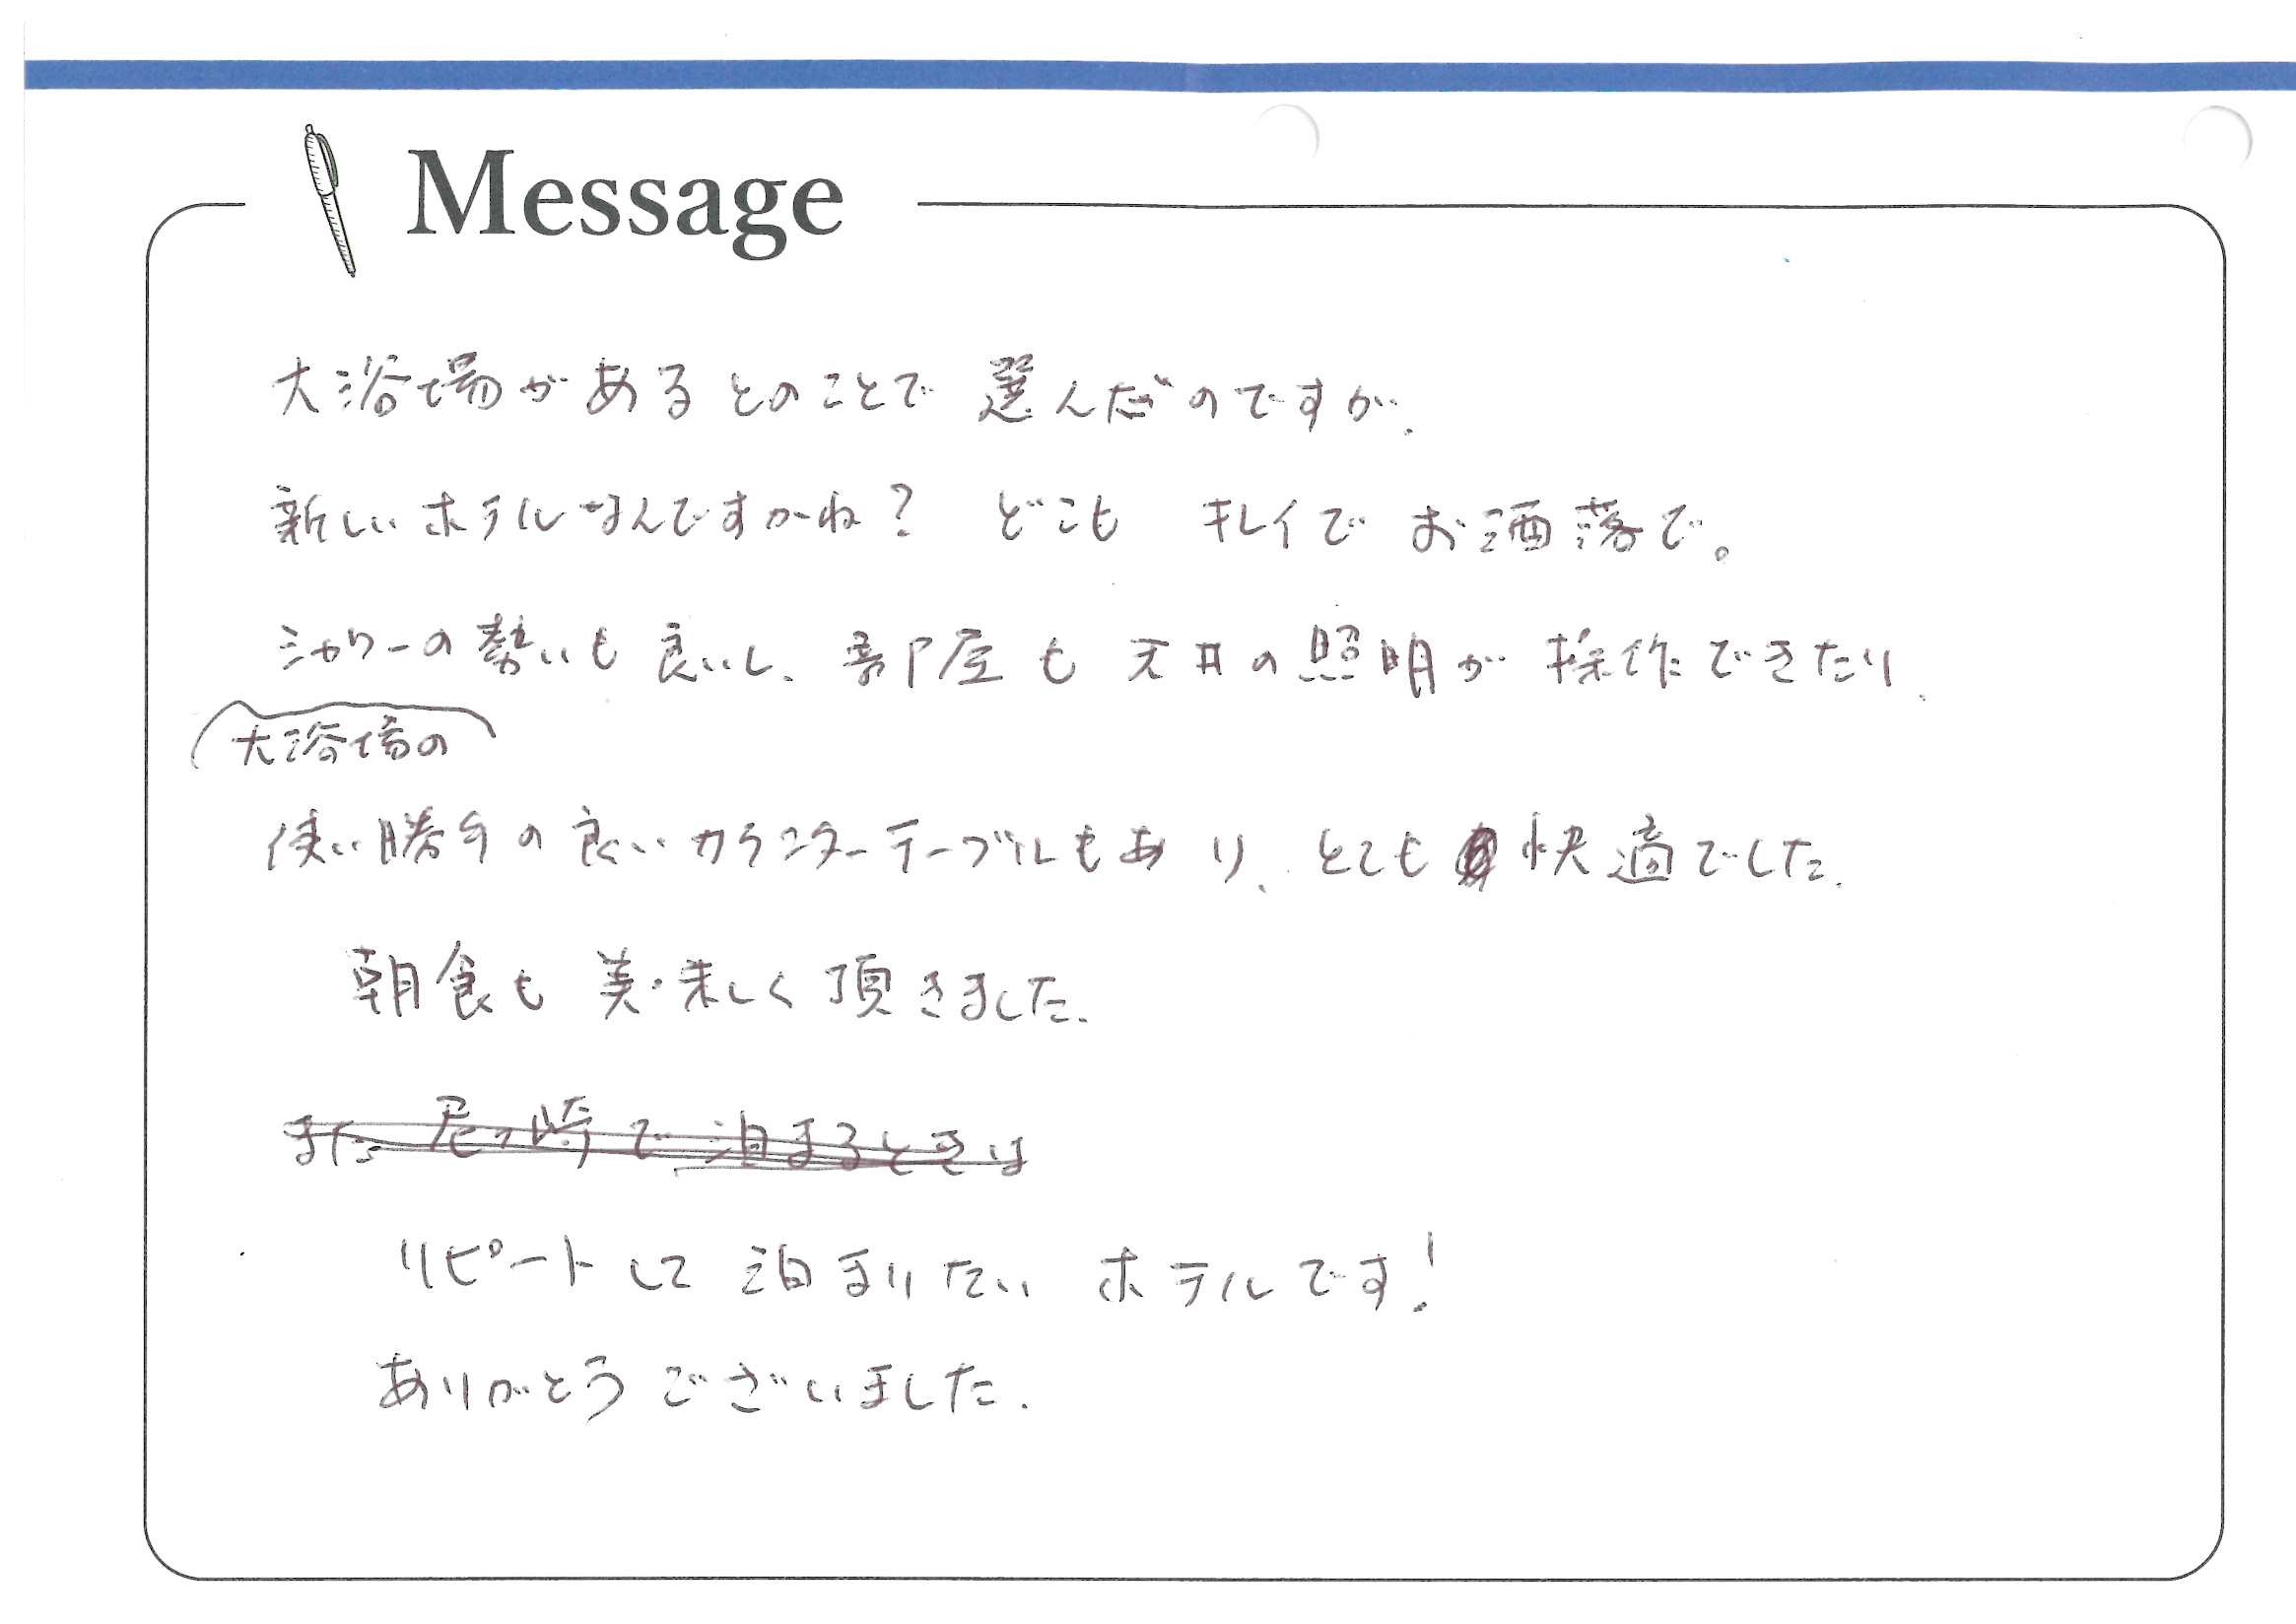 Message
大浴場があるとのことで 選んだのですが、
新しいホテルなんですかね? どこも キレイで お洒落で。
シャワーの勢いも良いし、部屋も天井の照明が操作できたり、
大浴場の
使い勝手の良いカウンターテーブルもあり、とても快適でした。
朝食も美味しく頂きました。
また 尼ヶ崎で泊まるときは
リピートして 泊まりたい ホテルです!
ありがとうございました.